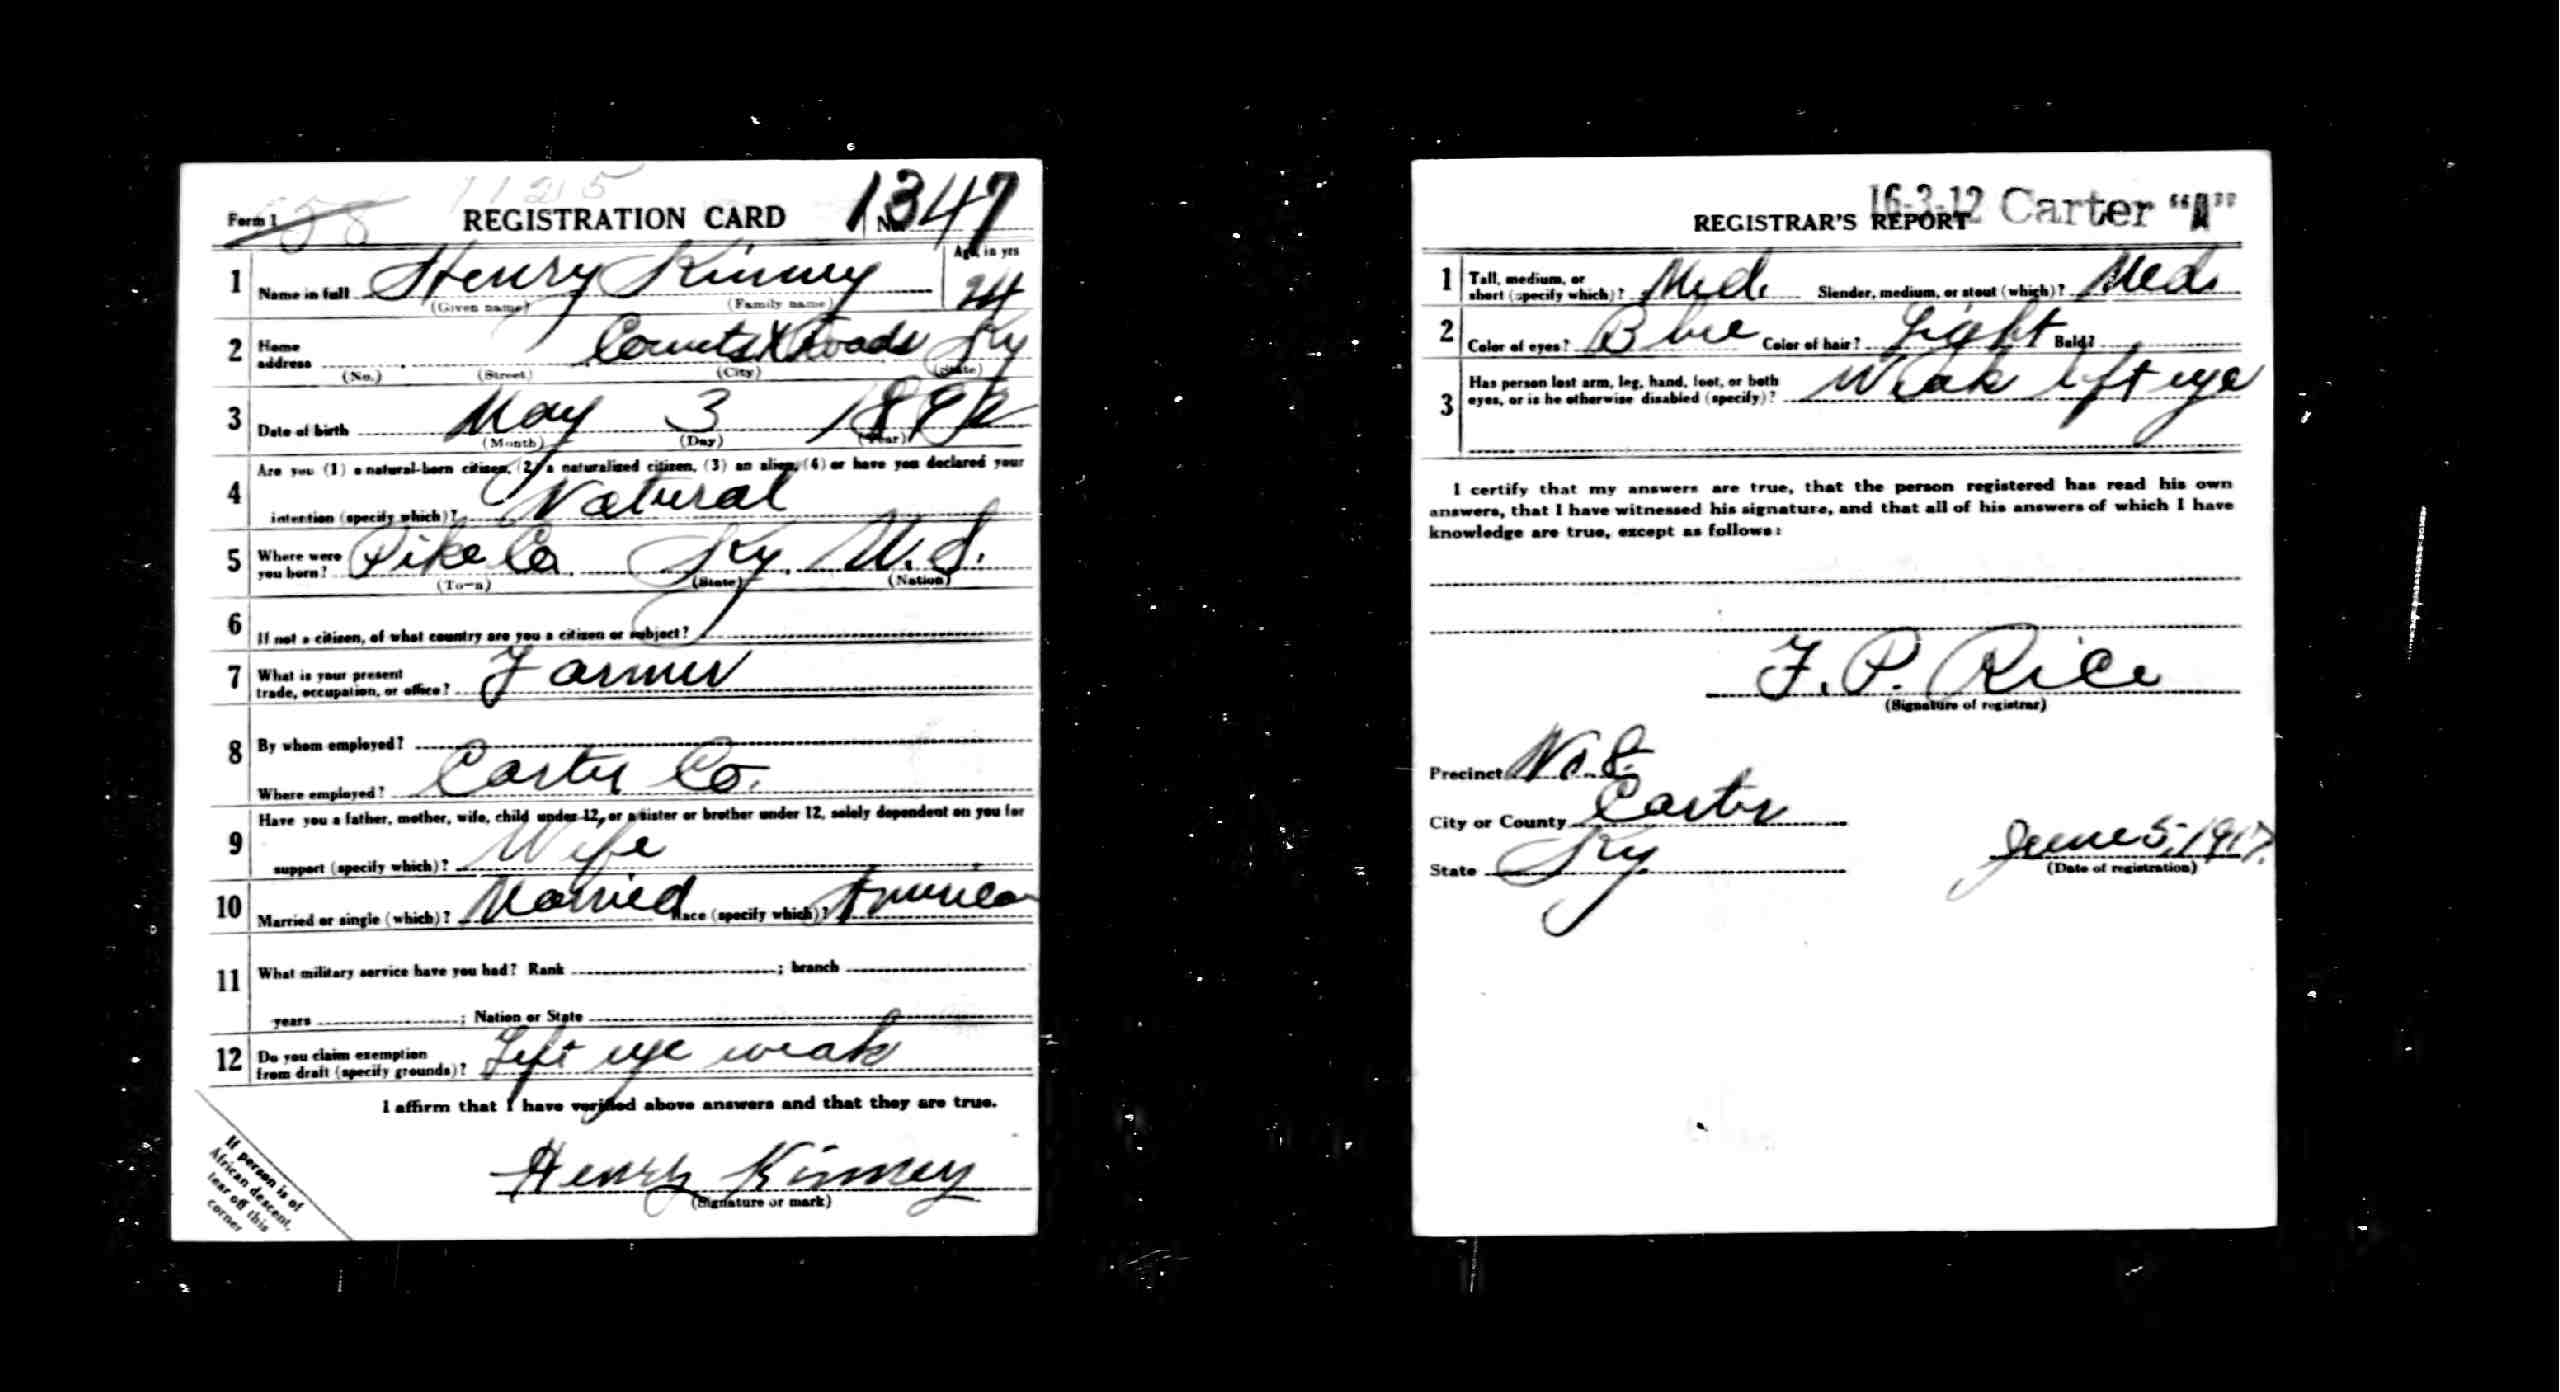 1125
Form 1 658 REGISTRATION CARD No. 1347
1 Name in full Henry Kinney Age, in yrs 24
(Given name) (Family name)
2 Home address Counts X Roads Ky
(No.) (Street) (City) (State)
3 Date of birth May 3 1892
(Month) (Day) (Year)
4 Are you (1) a natural-born citizen, (2) a naturalized citizen, (3) an alien, (4) or have you declared your
intention (specify which)? Natural
5 Where were you born? Pike Co Ky. U.S.
(Town) (State) (Nation)
6 If not a citizen, of what country are you a citizen or subject?
7 What is your present trade, occupation, or office? Farmer
8 By whom employed?
Where employed? Carter Co.
9 Have you a father, mother, wife, child under 12, or a sister or brother under 12, solely dependent on you for
support (specify which)? Wife
10 Married or single (which)? Married Race (specify which)? American
11 What military service have you had? Rank ; branch
years ; Nation or State
12 Do you claim exemption from draft (specify grounds)? Left eye weak
I affirm that I have verified above answers and that they are true.
Henry Kinney
(Signature or mark)
If person is of
African descent,
tear off this
corner
16-3-12 Carter "A"
REGISTRAR'S REPORT
1 Tall, medium, or short (specify which)? Med. Slender, medium, or stout (which)? Med.
2 Color of eyes? Blue Color of hair? Light Bald?
3 Has person lost arm, leg, hand, foot, or both eyes, or is he otherwise disabled (specify)? Weak left eye
I certify that my answers are true, that the person registered has read his own
answers, that I have witnessed his signature, and that all of his answers of which I have
knowledge are true, except as follows:
F. P. Rice
(Signature of registrar)
Precinct No 8
City or County Carter
State Ky June 5, 1917.
(Date of registration)